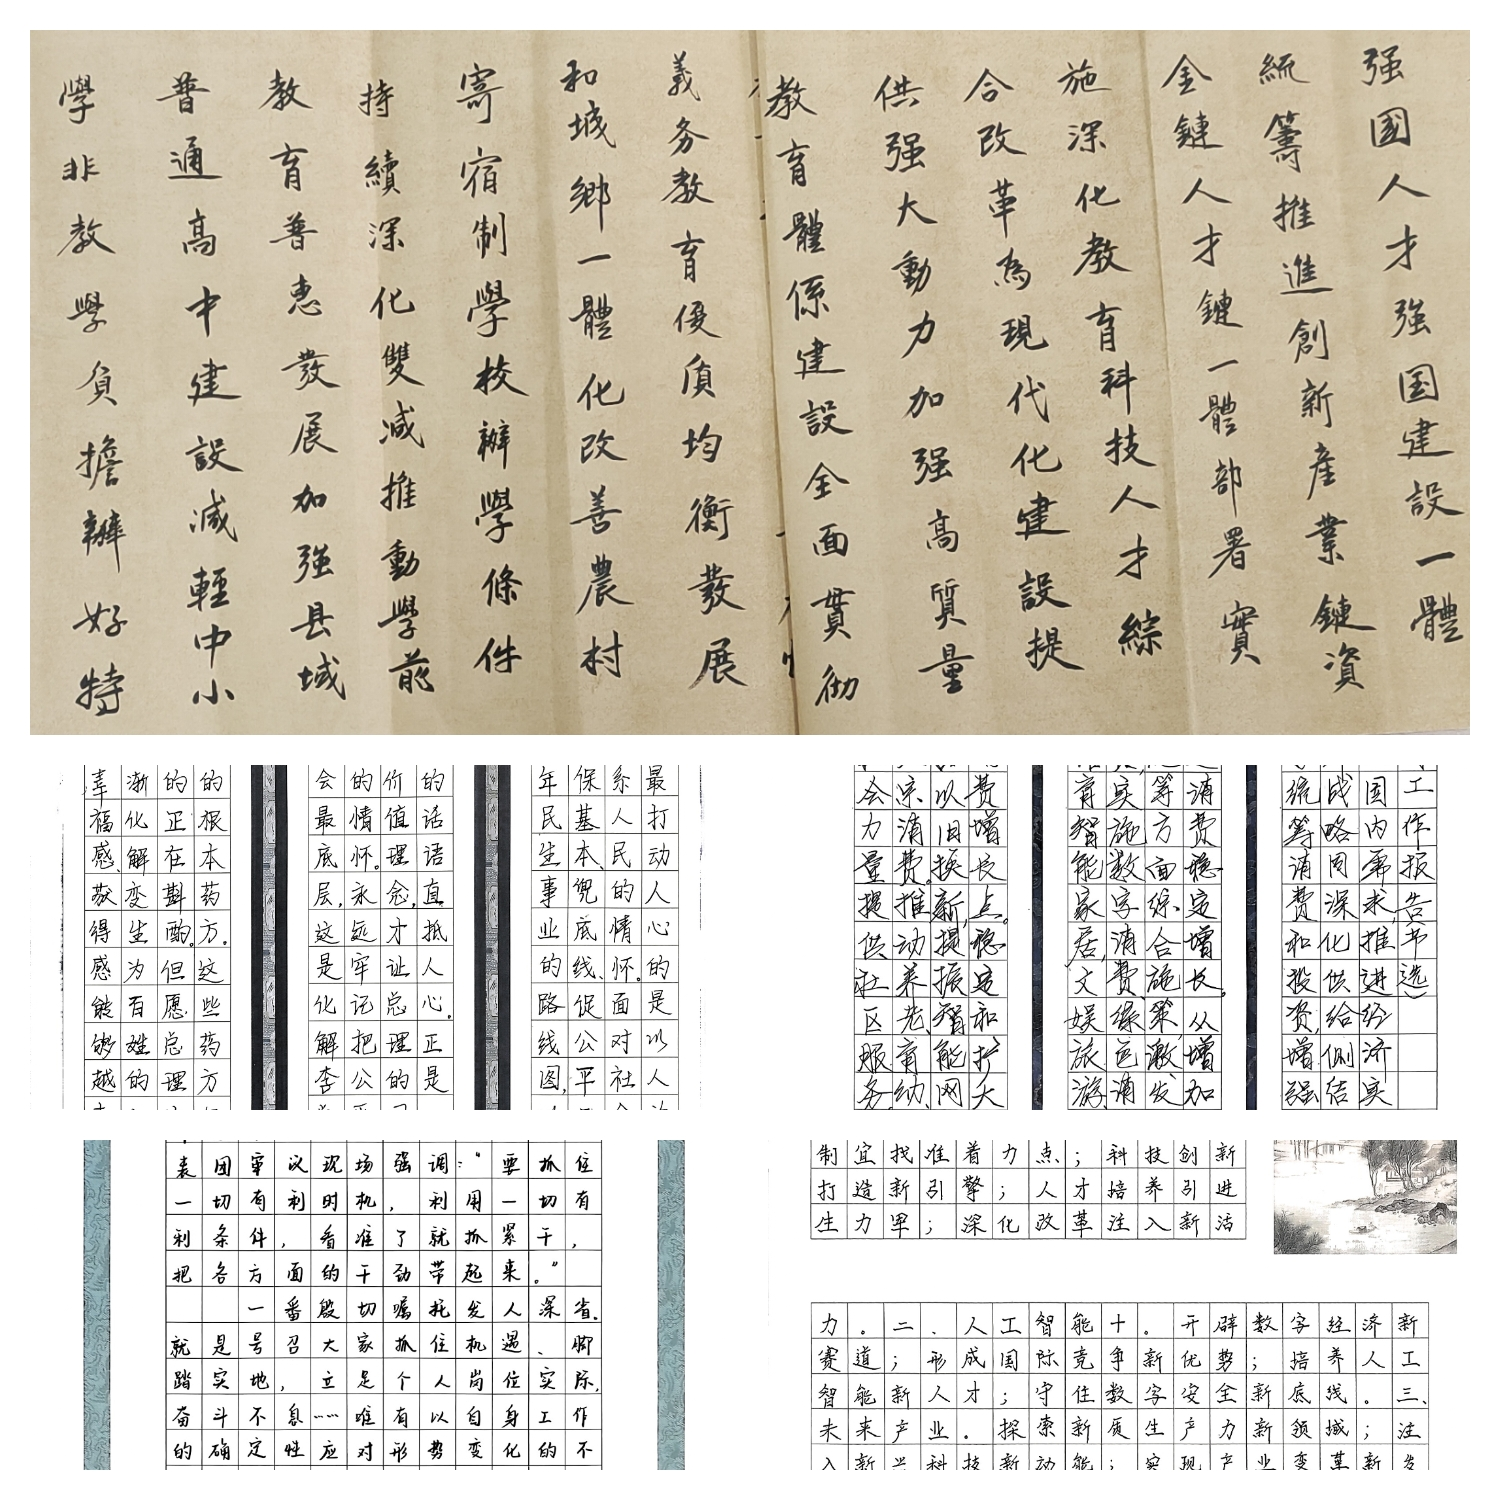 强國人才强国建設一體
統籌推進創新産業鏈資
金鏈人才鏈一體部署實
施深化教育科技人才綜
合改革為現代化建設提
供强大動力加强高質量
教育體係建設全面貫彻
義务教育優质均衡發展
和城鄉一體化改善農村
寄宿制學校辦學條件
持續深化雙减推動學前
教育普惠發展加强县域
普通高中建設减輕中小
學非教學負擔辦好特
最打动人心的是以人
系人民的情怀。面对社
保基本兜底线、促公平
年民生事业的路线图,
的话语直抵人心。正是
价值理念,才让总理的
的情怀。永远牢记把公
会最底层,这是化解李
的根本药方。这些药方
的正在斟酌。但愿总理
渐化解变生为百姓的
幸福感、获得感能够越
工作报告节选）
国内需求,推进经济实
战略同深化供给侧结
统筹消费和投资,增强
消费稳定增长。从增加
筹方面综合施策,激发
实施数字消费、绿色消
育智能家居、文娱旅游、
费增长点。稳定和扩大
以旧换新,提振智能网
宗消费。推动养老、育幼、
会力量提供社区服务、
表团审议现场强调:“要抓住
一切有利时机,利用一切有
利条件,看准了就抓紧干,
把各方面的干劲带起来。”
一番殷切嘱托发人深省。
就是号召大家抓住机遇、脚
踏实地,立足个人岗位实际,
奋斗不息……唯有以自身工作
的确定性应对形势变化的不
制宜找准着力点;科技创新
打造新引擎;人才培养引进
生力军;深化改革注入新活
力。二、人工智能十。开辟数字经济新
赛道;形成国际竞争新优势;培养人工
智能新人才;守住数字安全新底线。三、
未来产业。探索新质生产力新领域;注
入新兴科技新动能;实现产业变革新发